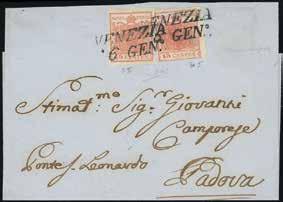 VENEZIA VENEZIA
6 GEN.º 6 GEN.º
15 CENTES
Stimat.mo Sig.r Giovanni
Camporese
Ponte S. Leonardo
Padova